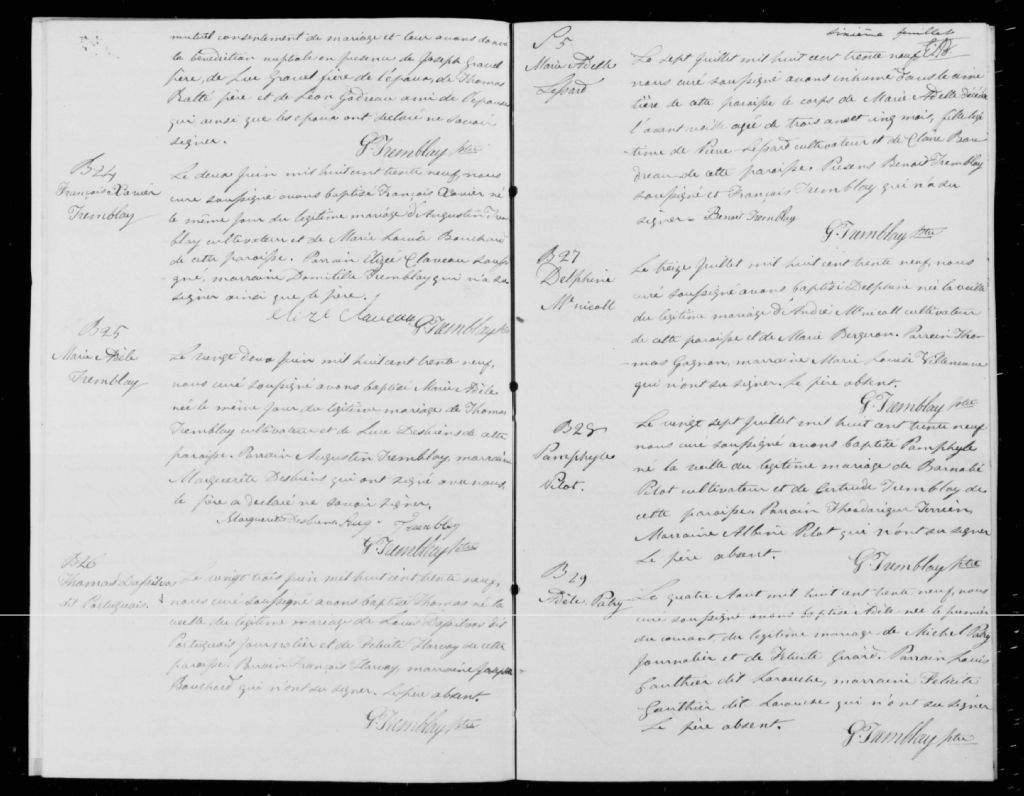 mutuel consentement de mariage et leur avons donné
la bénédiction nuptiale en présence de Joseph Gravel
père, de Luc Gravel père de l'époux, de Thomas
Ratté père et de Léon Gadreau ami de l'épouse
qui ainsi que les époux ont déclaré ne savoir
signer.
G. Tremblay ptre
B24
François Xavier
Tremblay
Le deux Juin mil huit cent trente neuf, nous
curé soussigné avons baptisé François Xavier né
le même jour du légitime mariage d'Augustin Trem
blay cultivateur et de Marie Louise Bouchard
de cette paroisse. Parrain Elizée Claveau sous
gné, marraine Domitille Tremblay qui n'a su
signer ainsi que le père.
Elize Claveau G. Tremblay ptre
B25
Marie Adèle
Tremblay
Le vingt deux Juin mil huit cent trente neuf,
nous curé soussigné avons baptisé Marie Adèle
née le même jour du légitime mariage de Thomas
Tremblay cultivateur et de Luce Desbiens de cette
paroisse. Parrain Augustin Tremblay, marraine
Marguerite Desbiens qui ont signé avec nous.
le père a déclaré ne savoir signer.
Marguerite Desbiens Aug. Tremblay
G. Tremblay ptre
B26
Thomas Dassilvas
dit Portuguais.
Le vingt trois juin mil huit cent trente neuf,
nous curé soussigné avons baptisé Thomas né la
veille du légitime mariage de Louis Dassilvas dit
Portuguais journalier et de Félicité Harvay de cette
paroisse. Parrain François Harvay, marraine Josephte
Bouchard qui n'ont su signer. Le père absent.
G. Tremblay ptre
Sixième feuillet
S 5
Marie Adelle
Lepard
Le sept Juillet mil huit cent trente neuf
nous curé soussigné avons inhumé dans le cime
tière de cette paroisse le corps de Marie Adelle décédée
l'avant veille agée de trois ans et cinq mois, fille légi
time de Pierre Lepard cultivateur et de Claire Bau
dreau de cette paroisse. Présens Benoit Tremblay
soussigné et François Tremblay qui n'a su
signer. Benoit Tremblay
G. Tremblay ptre
B27
Delphine
Mc nicoll
Le treize Juillet mil huit cent trente neuf, nous
curé soussigné avons baptisé Delphine née la veille
du légitime mariage d'André Mc nicoll cultivateur
de cette paroisse et de Marie Bergeron. Parrain Tho
mas Gagnon, marraine Marie Louise Villeneuve
qui n'ont su signer. Le père absent.
G. Tremblay ptre
B28
Pamphyle
Pilot.
Le vingt sept Juillet mil huit cent trente neuf
nous curé soussigné avons baptisé Pamphyle
né la veille du légitime mariage de Barnabé
Pilot cultivateur et de Gertrude Tremblay de
cette paroisse. Parrain Terrien,
Marraine Albine Pilot qui n'ont su signer
Le père absent.
G. Tremblay ptre
B29
Adèle Patry
Le quatre Aout mil huit cent trente neuf, nous
curé soussigné avons baptisé Adèle née le premier
du courant du légitime mariage de Michel Patry
Journalier et de Félicité Girard. Parrain Louis
Gauthier dit Larouche, marraine Félicité
Gauthier dit Larouche qui n'ont su signer
Le père absent.
G. Tremblay ptre